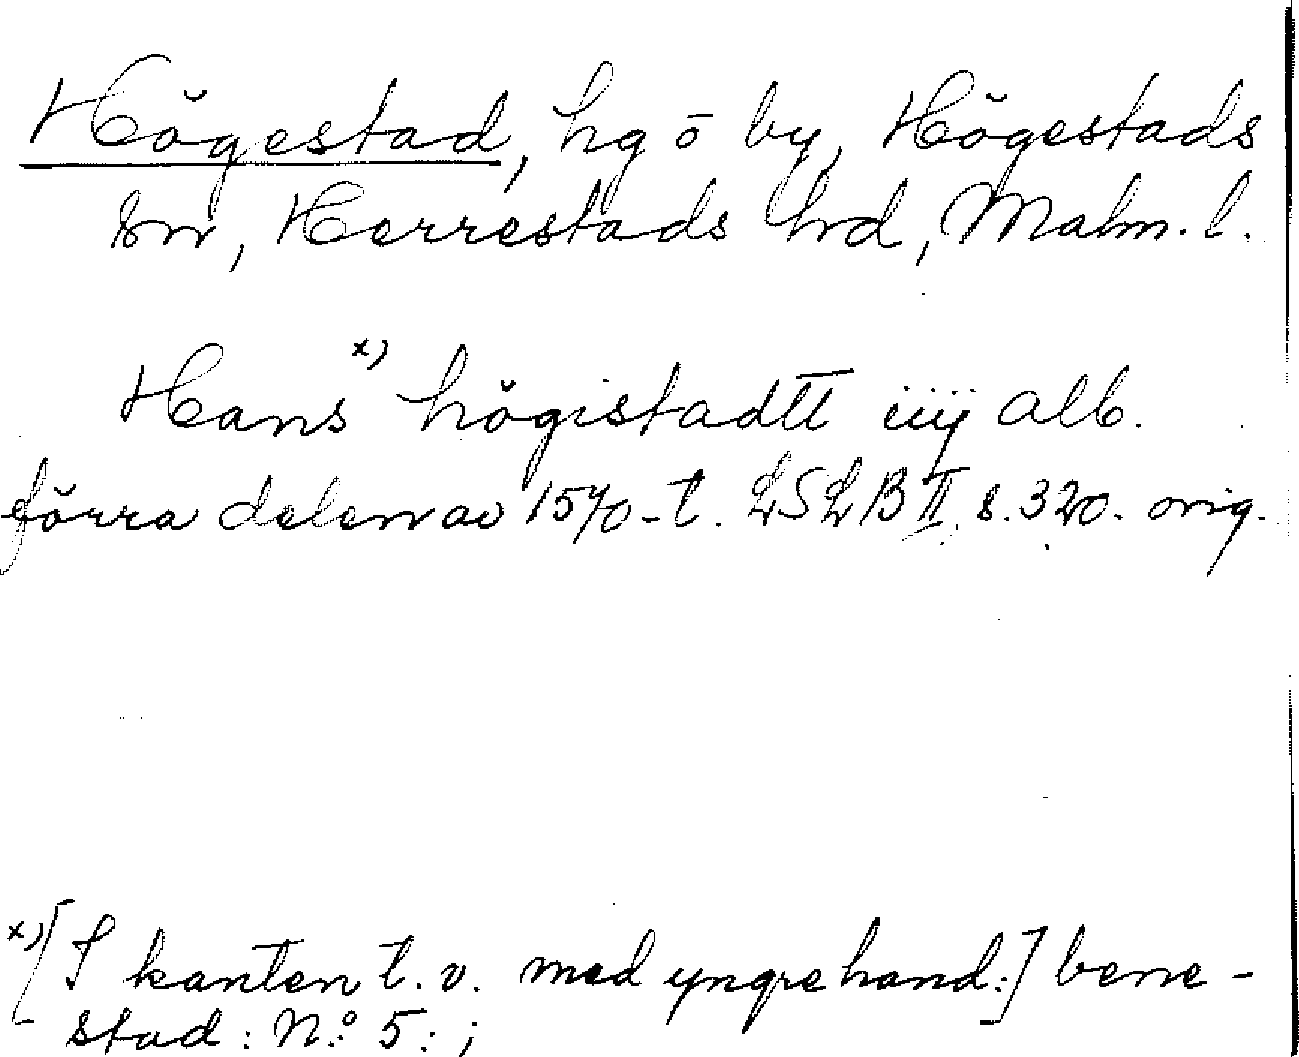 Högestad, hg o by, Högestads
sn, Herrestads hd, Malm. l.
Hans x) högistadtt iiij alb.
förra delen av 1570-t. LSLB II. s. 320. orig.
x) [I kanten t. v. med yngre hand:] bene-
stad: No 5: ;